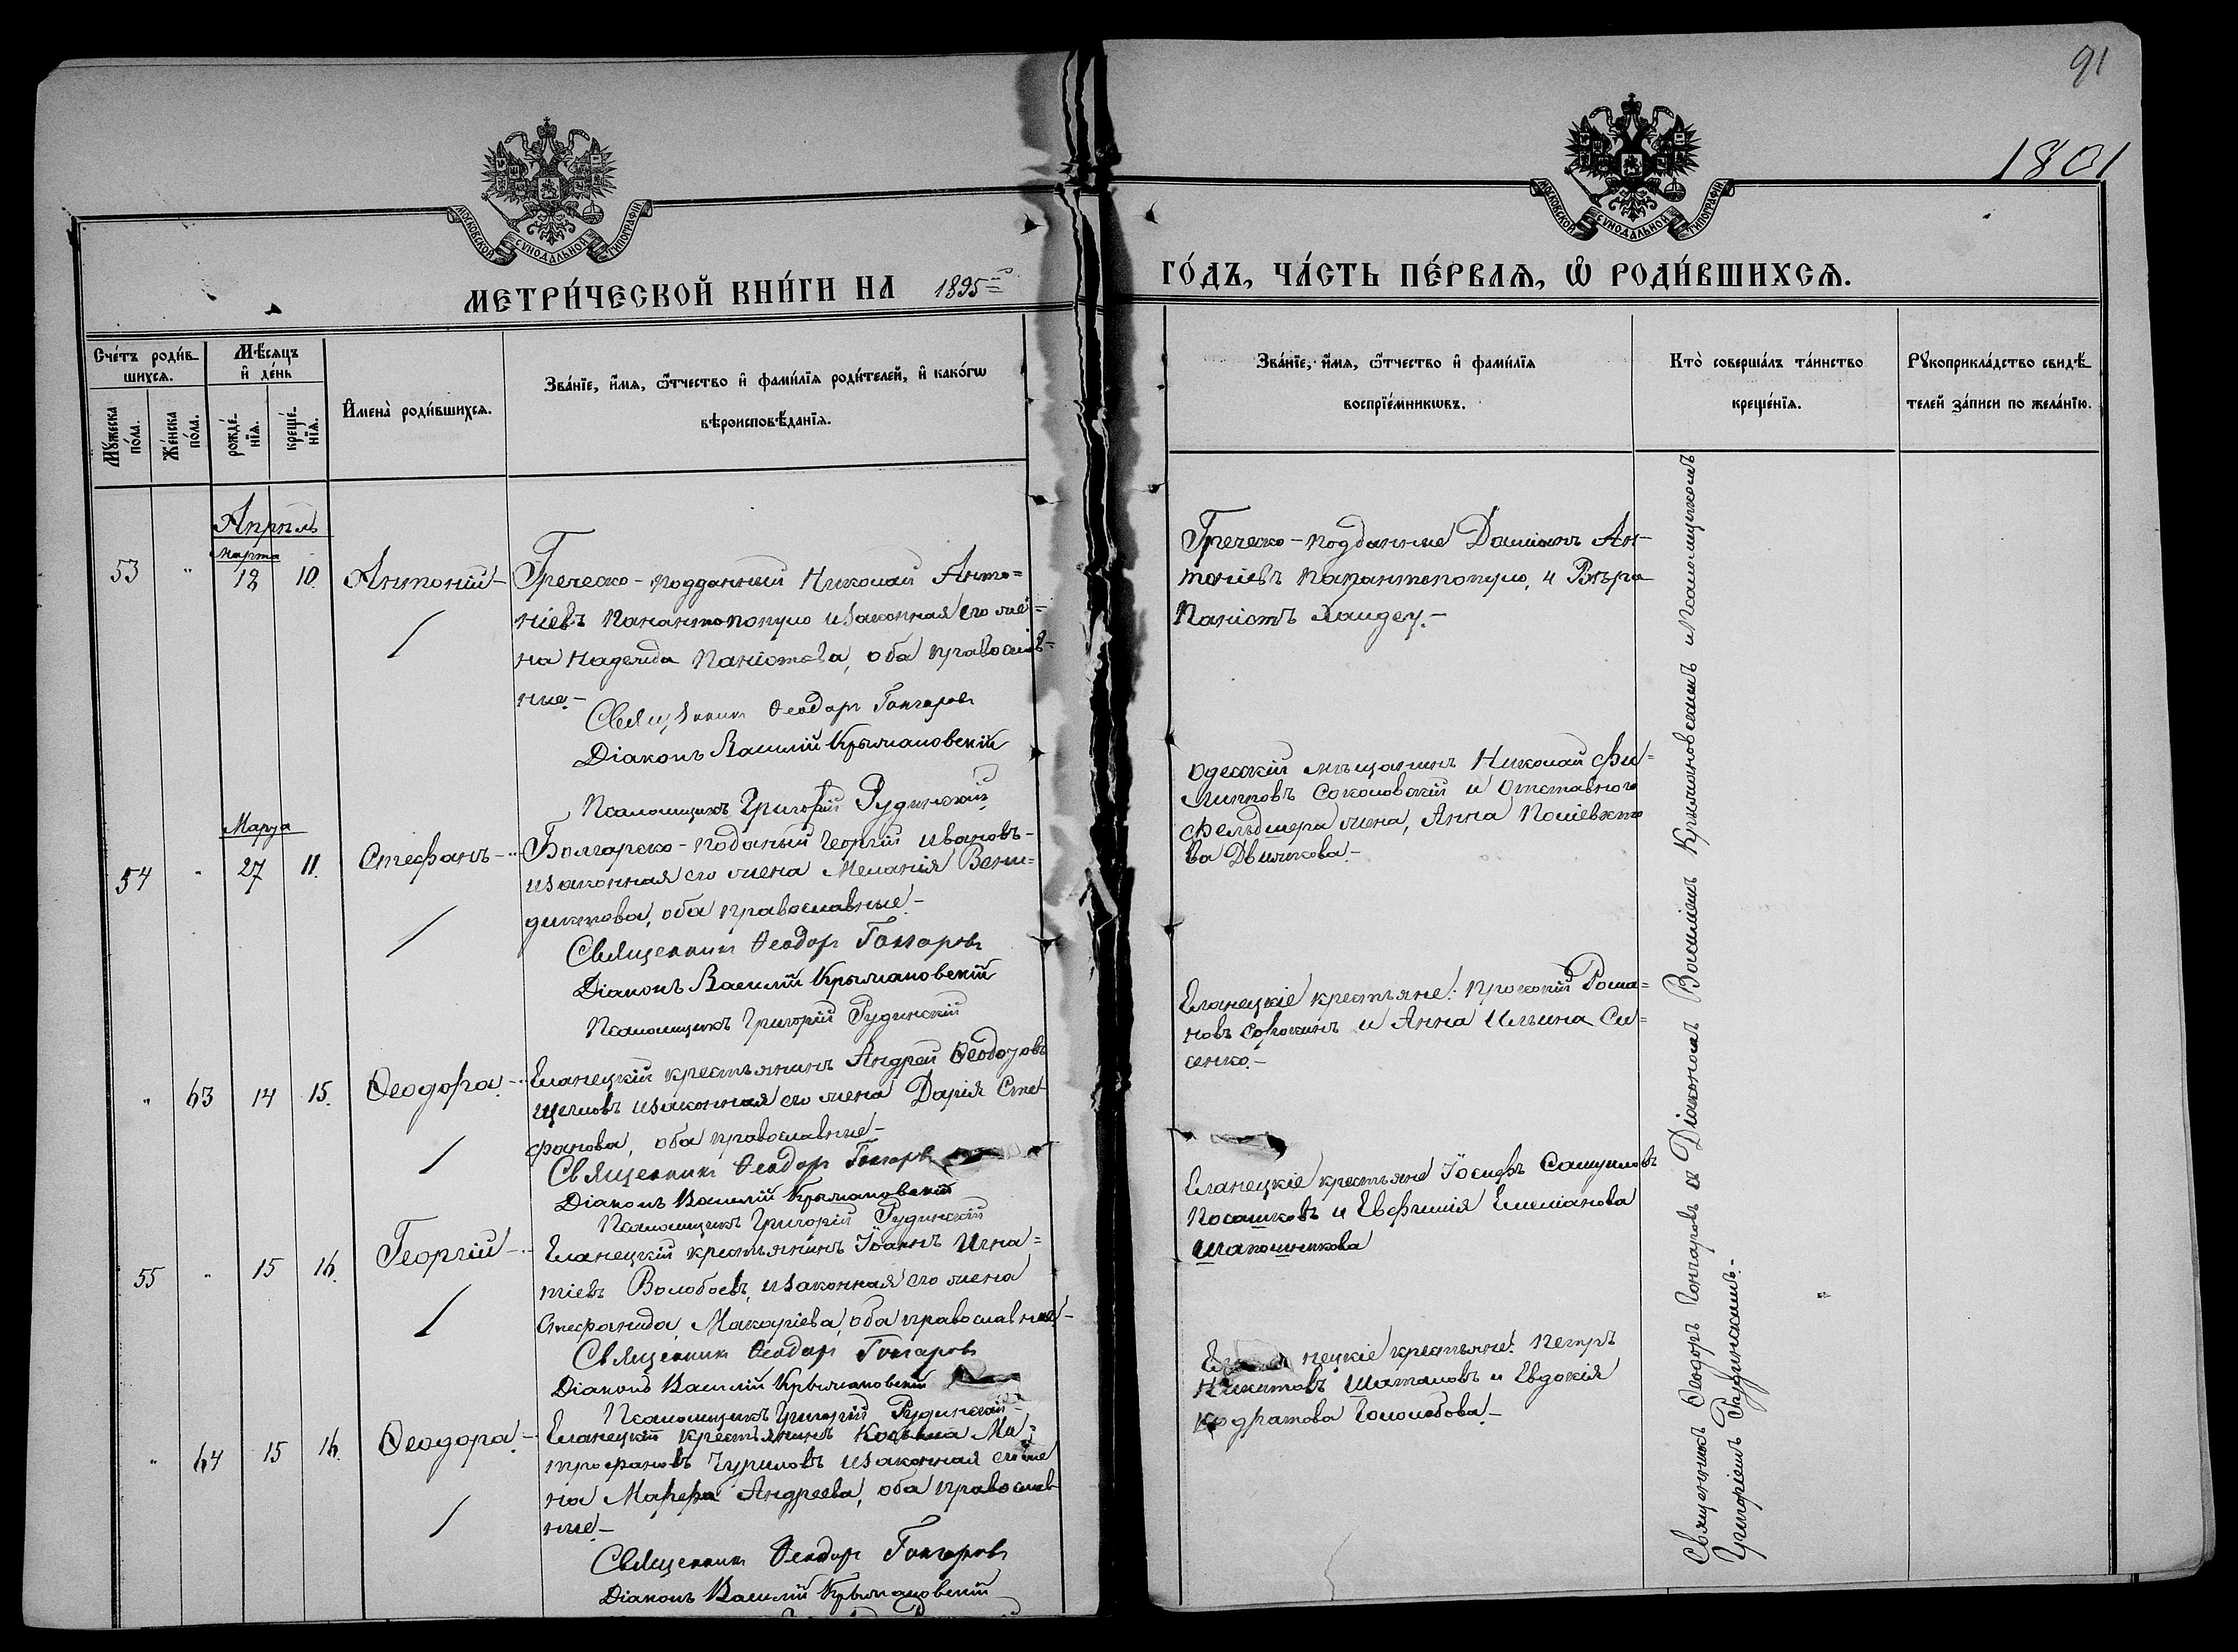 91
1801
МОСКОВСКОЙ СѴНОДАЛЬНОЙ ТИПОГРАФІИ
МОСКОВСКОЙ СѴНОДАЛЬНОЙ ТИПОГРАФІИ
МЕТРИ́ЧЕСКОЙ КНИ́ГИ НА 1895
ГО́ДЪ, ЧА́СТЬ ПЕ́РВАѦ, Ѽ РОДИ́ВШИХСѦ.
Сче́тъ роди́в-
шихсѧ.
Мꙋжеска по́ла.
Же́нска по́ла.
Мѣ́сѧцъ
и҆ де́нь
рожде́-
нїѧ.
креще́-
нїѧ.
И҆мена̀ роди́вшихсѧ.
Зва́нїе, и҆́мѧ, ѻ҆́тчество и҆ фами́лїѧ роди́телей, и҆ како́гѡ
вѣроисповѣ́данїѧ.
Зва́нїе, и҆́мѧ, ѻ҆́тчество и҆ фами́лїѧ
воспрїе́мникѡвъ.
Кто̀ соверша́лъ та́инство
креще́нїѧ.
Рꙋкоприкла́дство свидѣ́-
телей за́писи по жела́нїю.
Апрѣль
Марта
53 " 18 10. Антоній - Греческо-подданный Николай Анто=
ніевъ Папантопопуло и законная его же=
на Надежда Паніотова, оба православ=
ные.-
Священник Ѳеодоръ Гончаровъ
Діаконъ Василій Крыжановскій
Псаломщикъ Григорій Рудинскій
Греческо-подданные Даміанъ Ан-
тоніевъ Папантопопуло, и Вѣра
Паніотъ
Марта
54 " 27 11. Стефанъ - Болгарско-поданый Георгій Ивановъ-
и законная его жена Меланія Вени=
диктова, оба православные.-
Священникъ Ѳеодоръ Гончаровъ
Діаконъ Василій Крыжановскій
Псаломщикъ Григорій Рудинскій
Одесскій мѣщанинъ Николай Фи=
липповъ Соколовскій и Отставного
фельдшера жена, Анна
ва
" 63 14 15. Ѳеодора. - Еланецкій крестьянинъ Андрей Ѳеодоровъ
Щегловъ и законная его жена Дарія Сте
фанова, оба православные.-
Священникъ Ѳеодоръ Гончаровъ
Діаконъ Василій Крыжановскій
Псаломщикъ Григорій Рудинскій
Еланецкіе крестьяне: Прокопій Рома=
новъ Сорокинъ и Анна Ильина Си=
сенко.-
55 " 15 16. Георгій - Еланецкій крестьянинъ Іоаннъ Игна=
тіевъ Волобоевъ, и законная его жена
Стефанида Макаріева, оба православные.-
Священникъ Ѳеодоръ Гончаровъ
Діаконъ Василій Крыжановскій
Псаломщикъ Григорій Рудинскій
Еланецкіе крестьяне Іосифъ Самуиловъ
Посашковъ и Евфимія Емеліанова
Шапошникова
" 64 15 16. Ѳеодора. - Еланецкій крестьянинъ Косьма Ми=
трофановъ Чуриловъ и законная его же
на Марфа Андреева, оба православ
ные.-
Священникъ Ѳеодоръ Гончаровъ
Діаконъ Василій Крыжановскій
нецкіе крестьяне: Петръ
Никитовъ Шаталовъ и Евдокія
Кодратова Гололобова.-
Священникъ Ѳеодоръ Гончаровъ съ Діакономъ Василіемъ Крыжановскимъ и Псаломщикомъ
Григоріемъ Рудинскимъ.-